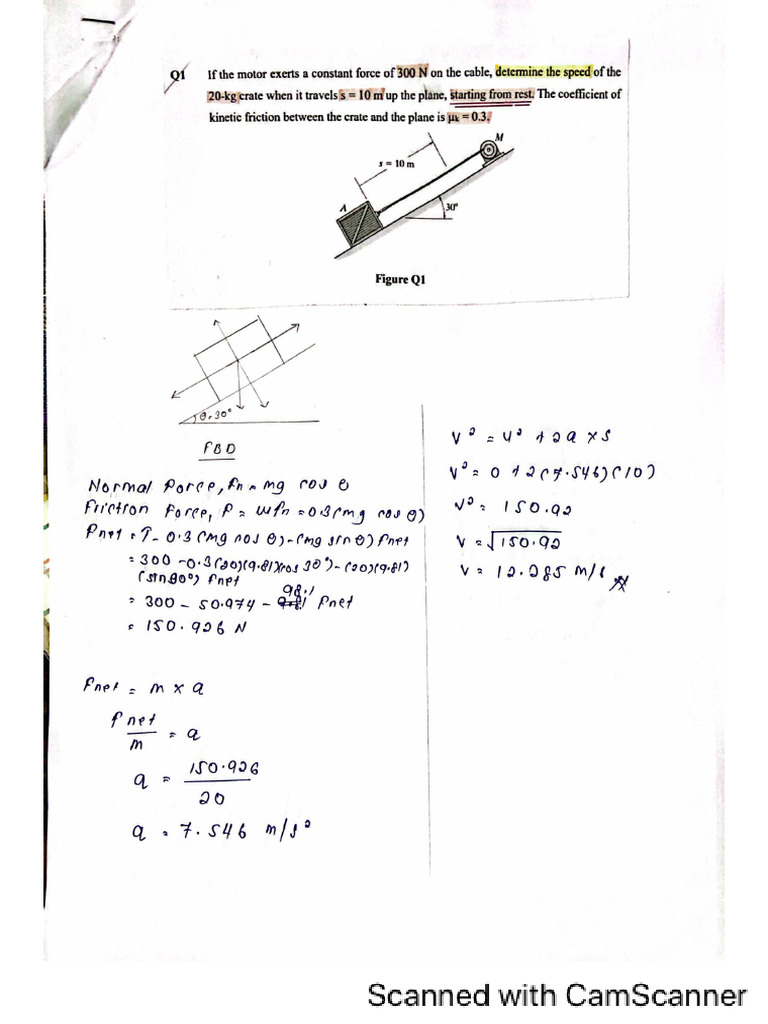 Q1 If the motor exerts a constant force of 300 N on the cable, determine the speed of the
20-kg crate when it travels s = 10 m up the plane, starting from rest. The coefficient of
kinetic friction between the crate and the plane is μk = 0.3.
M
s = 10 m
A
30°
Figure Q1
θ = 30°
FBD
Normal Force, Fn = mg cos θ
Friction Force, F = uFn = 0.3(mg cos θ)
Fnet = T - 0.3 (mg cos θ) - (mg sin θ) Fnet
= 300 - 0.3(20)(9.81)(cos 30°) - (20)(9.81)
(sin30°) Fnet
98.1
= 300 - 50.974 - Fnet
= 150.926 N
Fnet = m x a
Fnet
m
= a
a = 150.926
20
a = 7.546 m/s²
V² = u² + 2a x s
V² = 0 + 2(7.546)(10)
V² = 150.92
V = √150.92
V = 12.285 m/s
Scanned with CamScanner